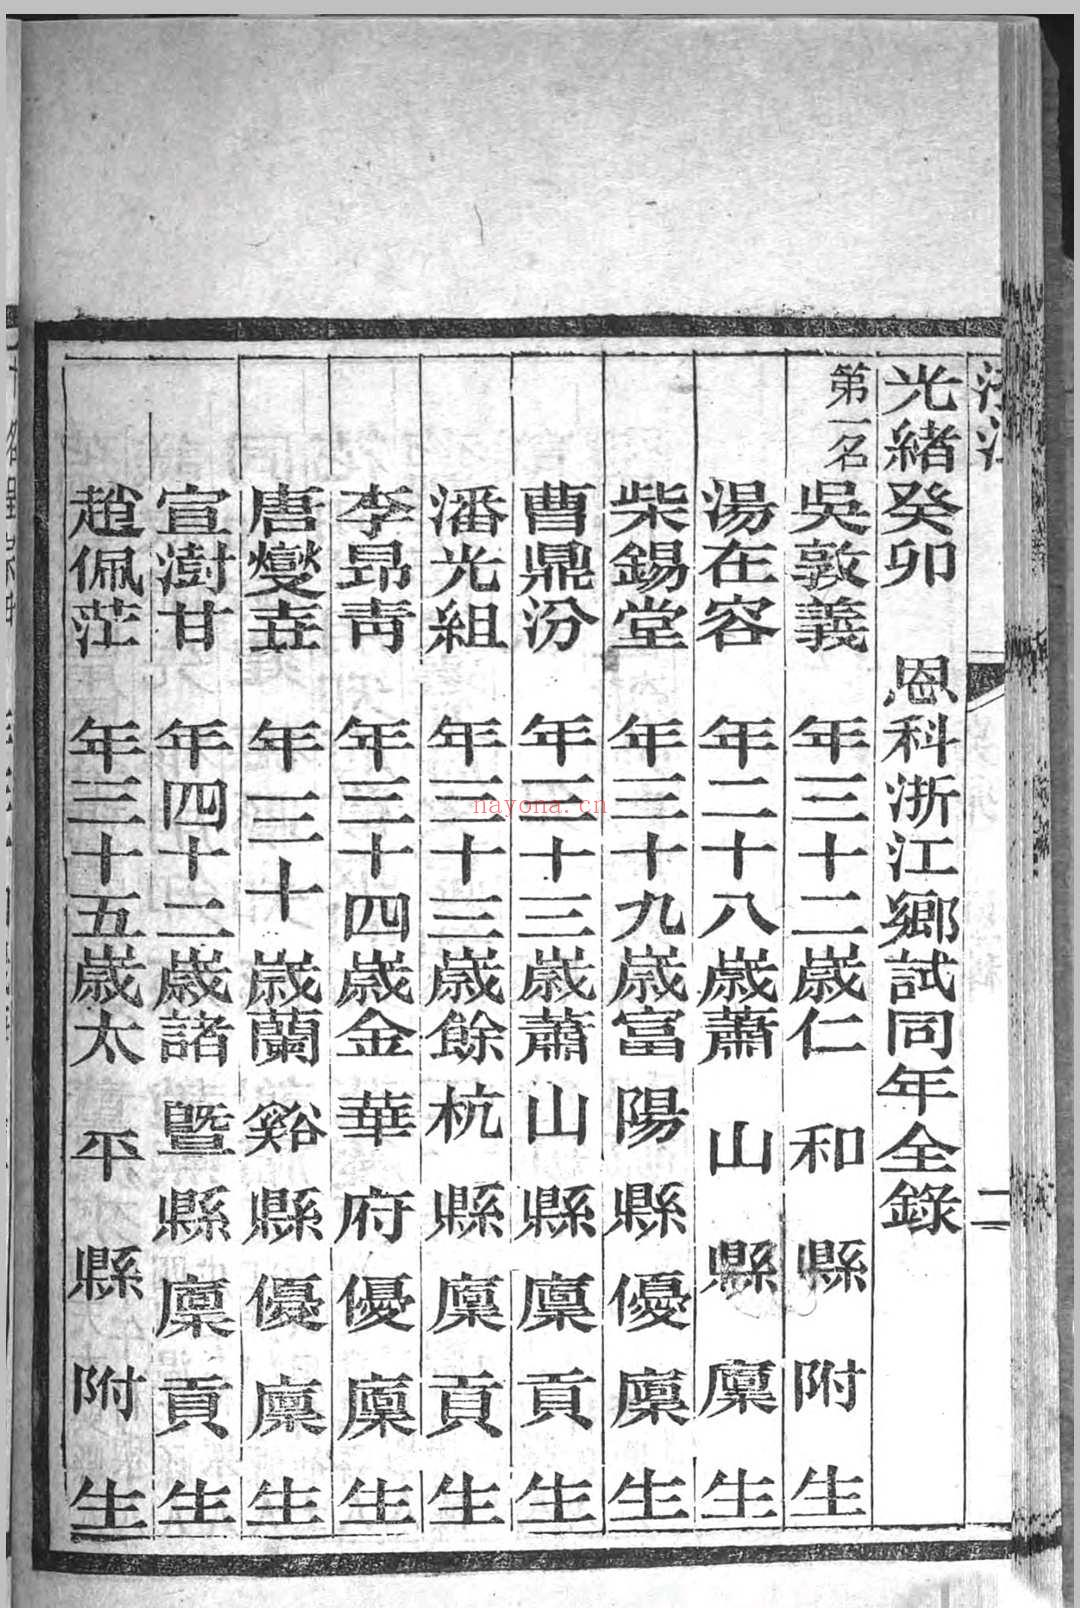 光緒癸卯 恩科浙江鄉試同年全錄
第一名 吳敦義 年三十二歲仁和縣附生
湯在容 年二十八歲蕭山縣廩生
柴錫堂 年三十九歲富陽縣優廩生
曹鼎汾 年三十三歲蕭山縣廩貢生
潘光組 年三十三歲餘杭縣廩貢生
李昂靑 年三十四歲金華府優廩生
唐燮垚 年三十歲蘭谿縣優廩生
宣澍甘 年四十二歲諸暨縣廩貢生
趙佩茳 年三十五歲太平縣附生
nayona.cn